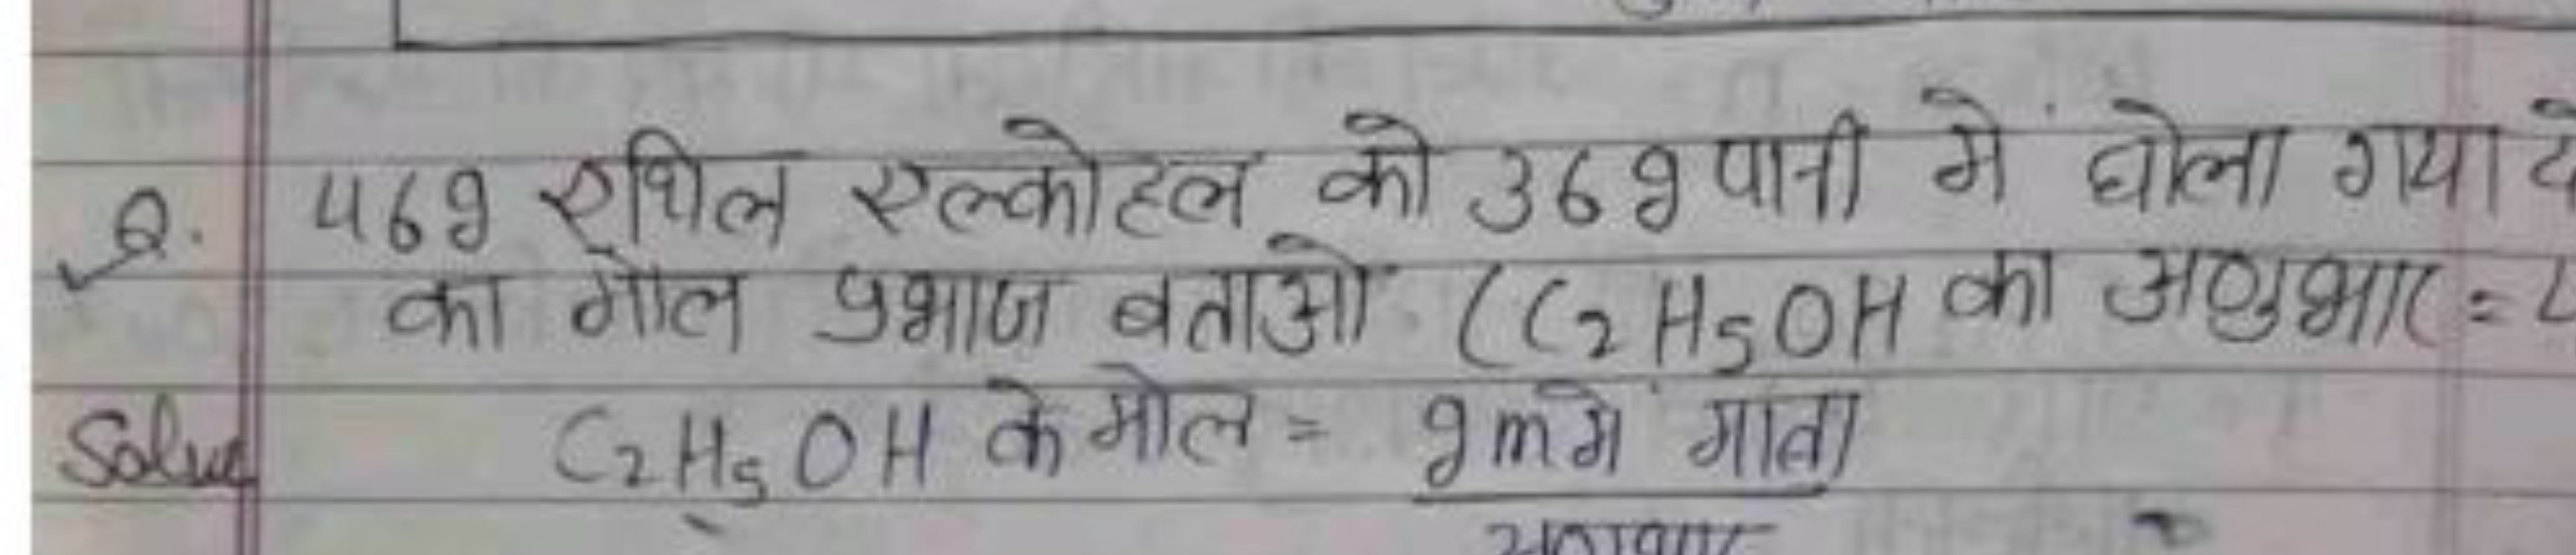 Q. 46g एथिल एल्कोहल को 36g पानी में घोला गया
का मोल प्रभाज बताओ (C₂H₅OH का अणुभार =
Solve C₂H₅OH के मोल = gm में मात्रा
अणुभार